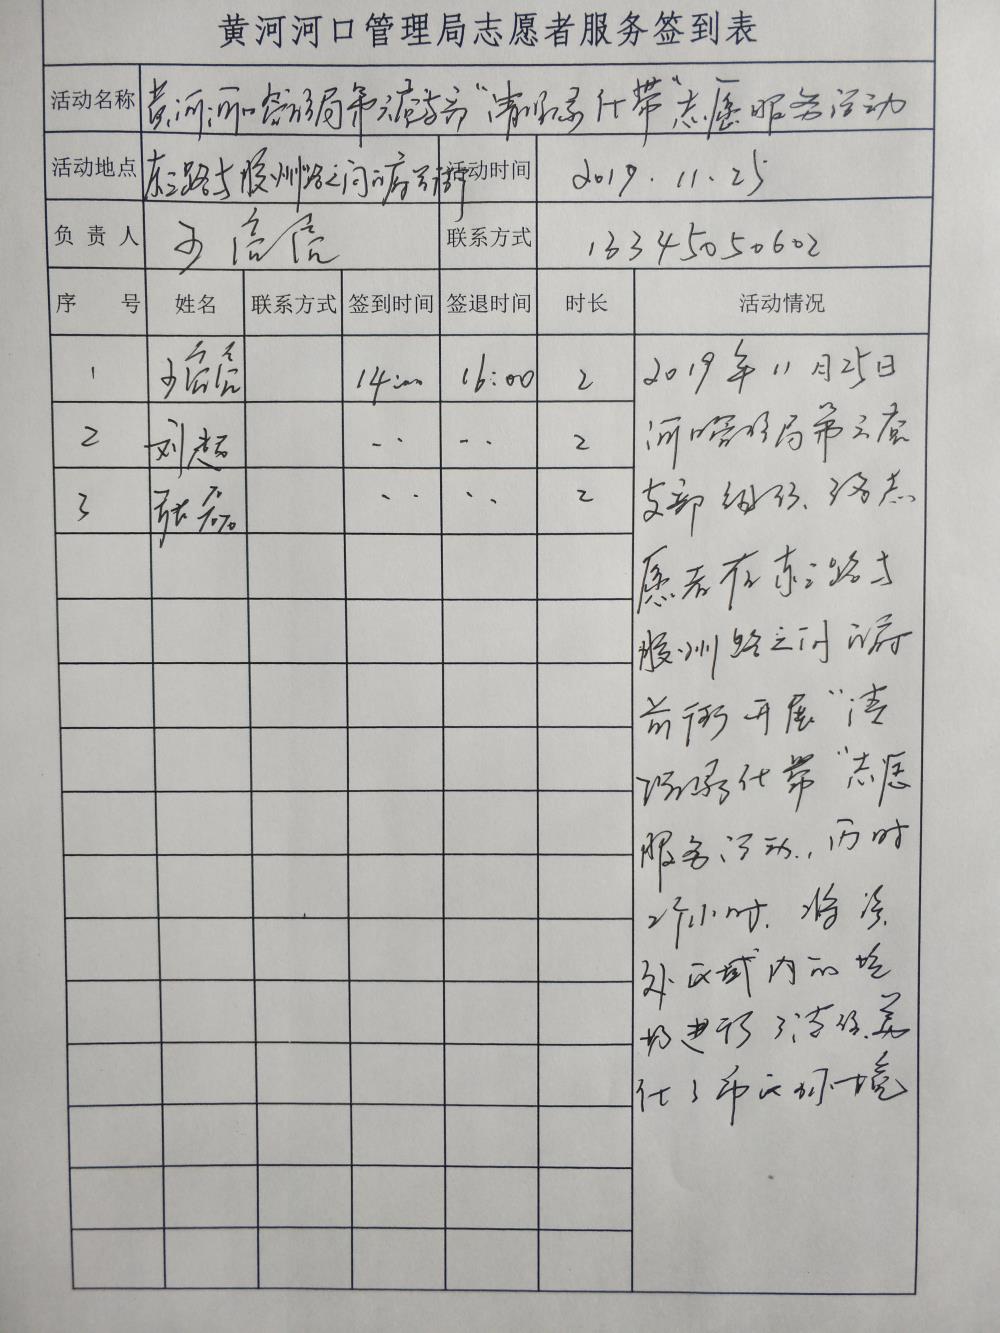 黄河河口管理局志愿者服务签到表
活动名称 黄河河口管理局第六党支部“清理绿化带”志愿服务活动
活动地点 东三路与胶州路之间府前街 活动时间 2019.11.25
负责人 王信信 联系方式 13345050602
序号 姓名 联系方式 签到时间 签退时间 时长 活动情况
1 王信信 14:00 16:00 2
2 刘 2
3 张磊 2
2019年11月25日
河口管理局第六党
支部组织志
愿者在东三路与
胶州路之间府
前街开展“清
理绿化带”志愿
服务活动,历时
2个小时,将该
处区域内的垃
圾进行了清理,美
化了市区环境